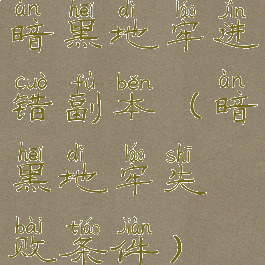 àn hēi dì láo jìn
暗黑地牢进
cuò fù běn àn
错副本（暗
hēi dì láo shī
黑地牢失
bài tiáo jiàn
败条件）